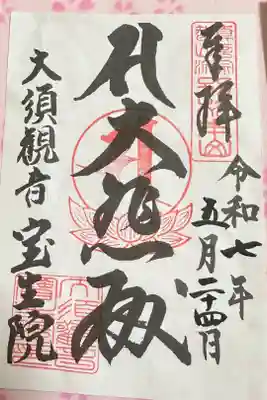 奉拝
令和七年
五月二十四日
大悲殿
大須観音
宝生院